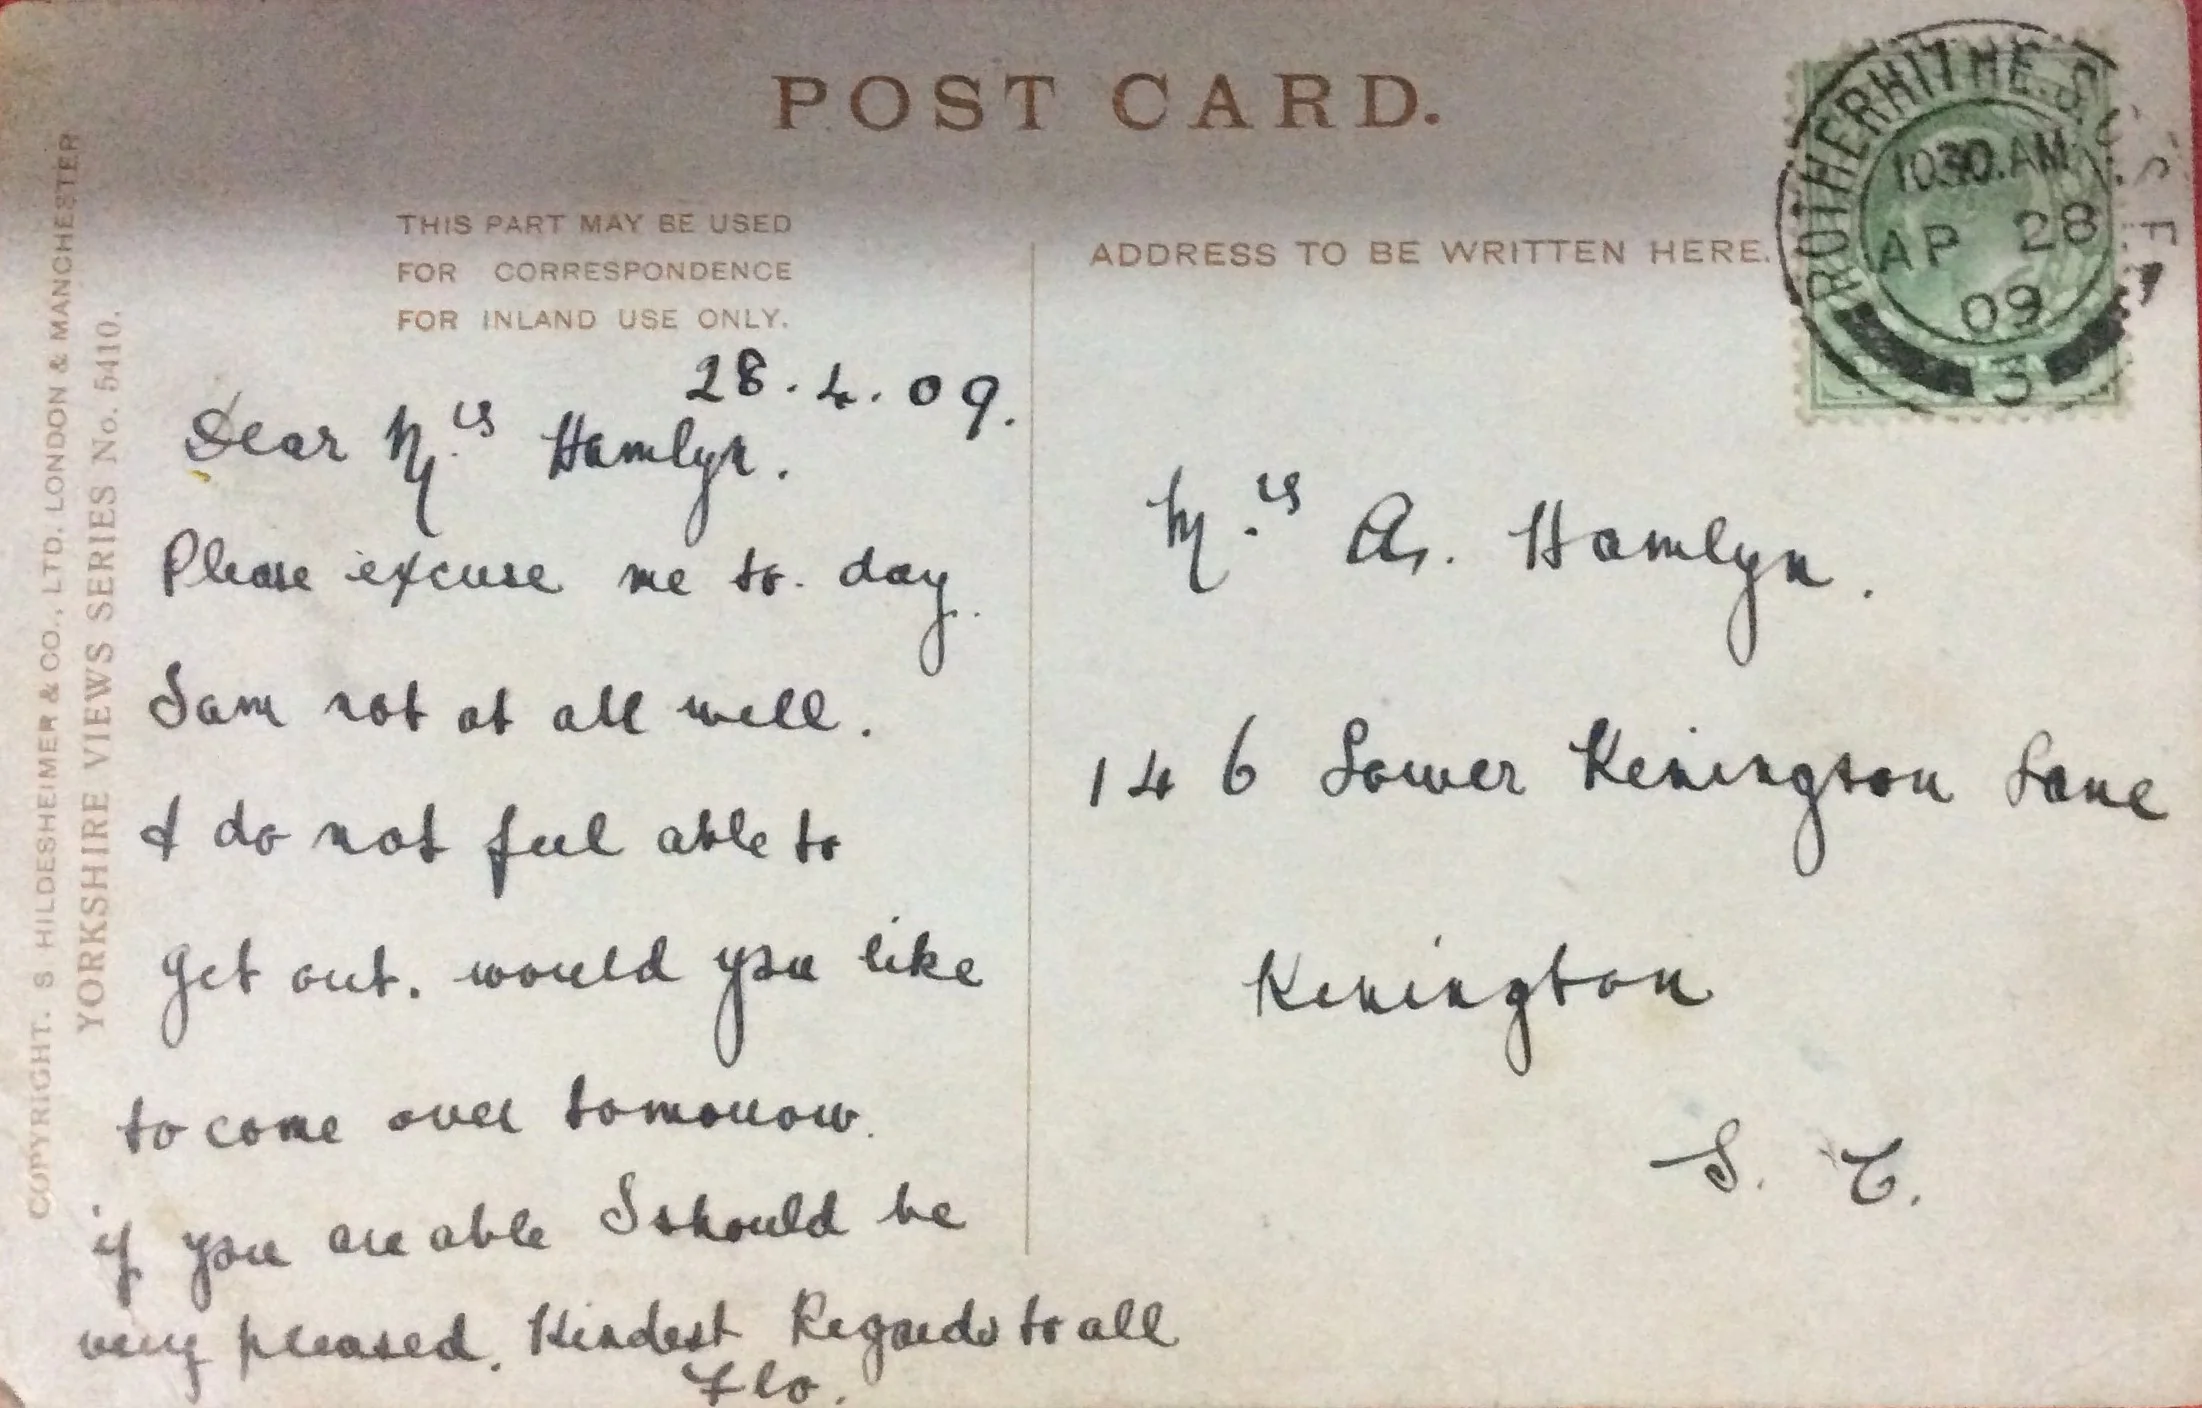 POST CARD.
THIS PART MAY BE USED
FOR CORRESPONDENCE
FOR INLAND USE ONLY.
ADDRESS TO BE WRITTEN HERE.
ROTHERHITHE. S.O.
10 30. AM
AP 28
09
3
S.E.
COPYRIGHT. S HILDESHEIMER & CO., LTD. LONDON & MANCHESTER
YORKSHIRE VIEWS SERIES No. 5410.
28.4.09.
Dear Mrs Hamlyn.
Please excuse me to. day.
I am not at all well.
& do not feel able to
get out. would you like
to come over tomorrow.
if you are able I should be
very pleased. Kindest Regards to all
Flo.
Mrs A. Hamlyn.
146 Lower Kenington Lane
Kenington
S. E.